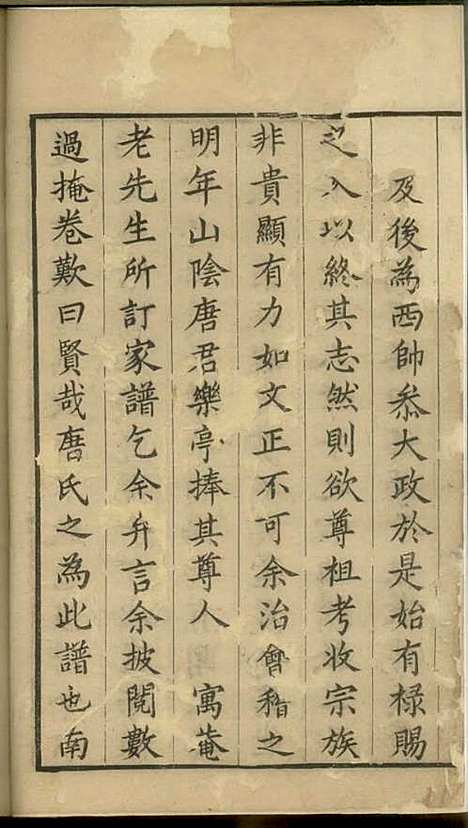 及後為西帥叅大政於是始有祿賜
之入以終其志然則欲尊祖考收宗族
非貴顯有力如文正不可余治會稽之
明年山陰唐君樂亭捧其尊人　寓菴
老先生所訂家譜乞余弁言余披閱數
過掩卷歎曰賢哉唐氏之為此譜也南